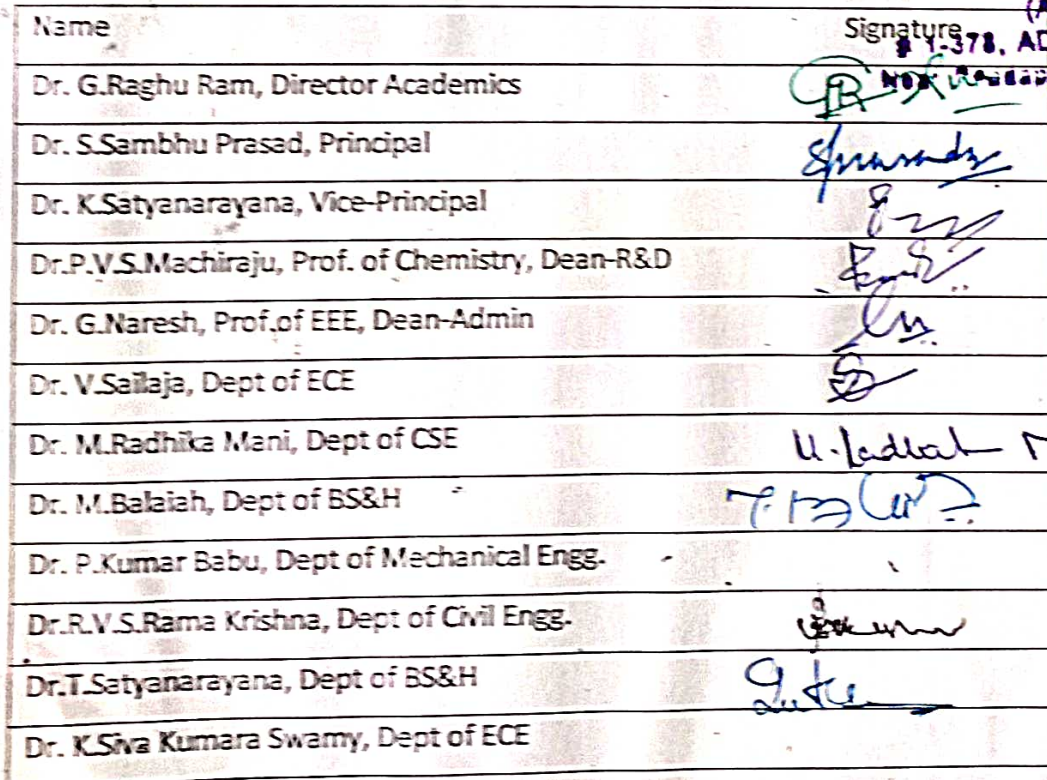 Name Signature
# 1-378, AD
Dr. G.Raghu Ram, Director Academics
Dr. S.Sambhu Prasad, Principal
Dr. K.Satyanarayana, Vice-Principal
Dr.P.V.S.Machiraju, Prof. of Chemistry, Dean-R&D
Dr. G.Naresh, Prof.of EEE, Dean-Admin
Dr. V.Sailaja, Dept of ECE
Dr. M.Radhika Mani, Dept of CSE
Dr. M.Balaiah, Dept of BS&H
Dr. P.Kumar Babu, Dept of Mechanical Engg.
Dr.R.V.S.Rama Krishna, Dept of Civil Engg.
Dr.T.Satyanarayana, Dept of BS&H
Dr. K.Siva Kumara Swamy, Dept of ECE